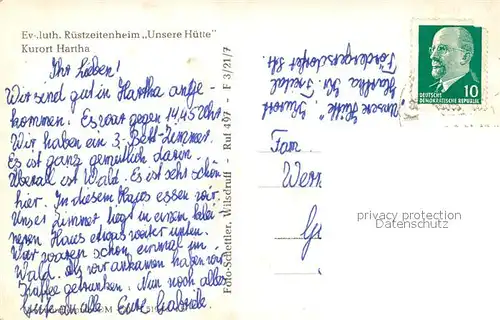 Ev.-luth. Rüstzeitenheim „Unsere Hütte"
Kurort Hartha
Ihr Lieben!
Wir sind gut in Hartha ange-
kommen. Es war gegen 14.45 Uhr.
Wir haben ein 3-Bett-Zimmer.
Es ist ganz gemütlich darin.
Überall ist Wald. Es ist sehr schön
hier. In diesem Haus essen wir.
Unser Zimmer liegt in einem klei-
neren Haus etwas weiter unten.
Wir waren schon einmal im
Wald. Als wir ankamen haben wir
Kaffee getrunken. Nun noch alles
Gute an alle Eure Gabriele
Foto-Schettler, Wilsdruff Ruf 497 - F 3/21/7
„Unsere Hütte", Kurort
Hartha Kr. Freital
DEUTSCHE
DEMOKRATISCHE REPUBLIK
10
Fam.
Wern
privacy protection
Datenschutz